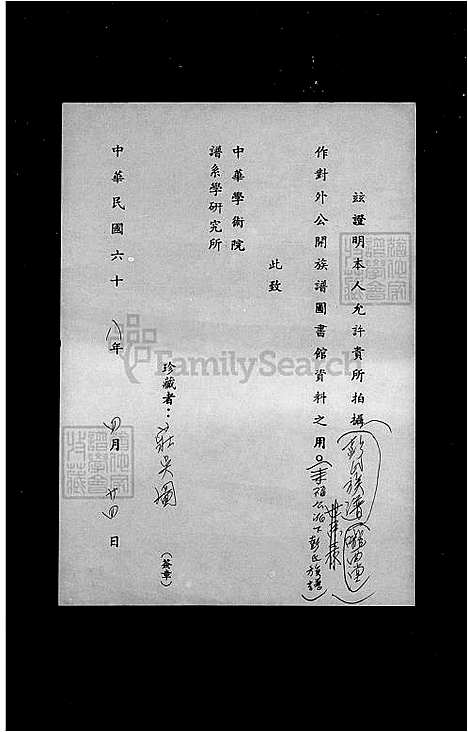 茲證明本人允許貴所拍攝（彭氏族譜（隴西堂）
作對外公開族譜圖書館資料之用。（來福公派下彭氏族譜）
此致
中華學術院
譜系學研究所
珍藏者：莊吳圖（簽章）
中華民國六十八年四月廿四日
FamilySearch